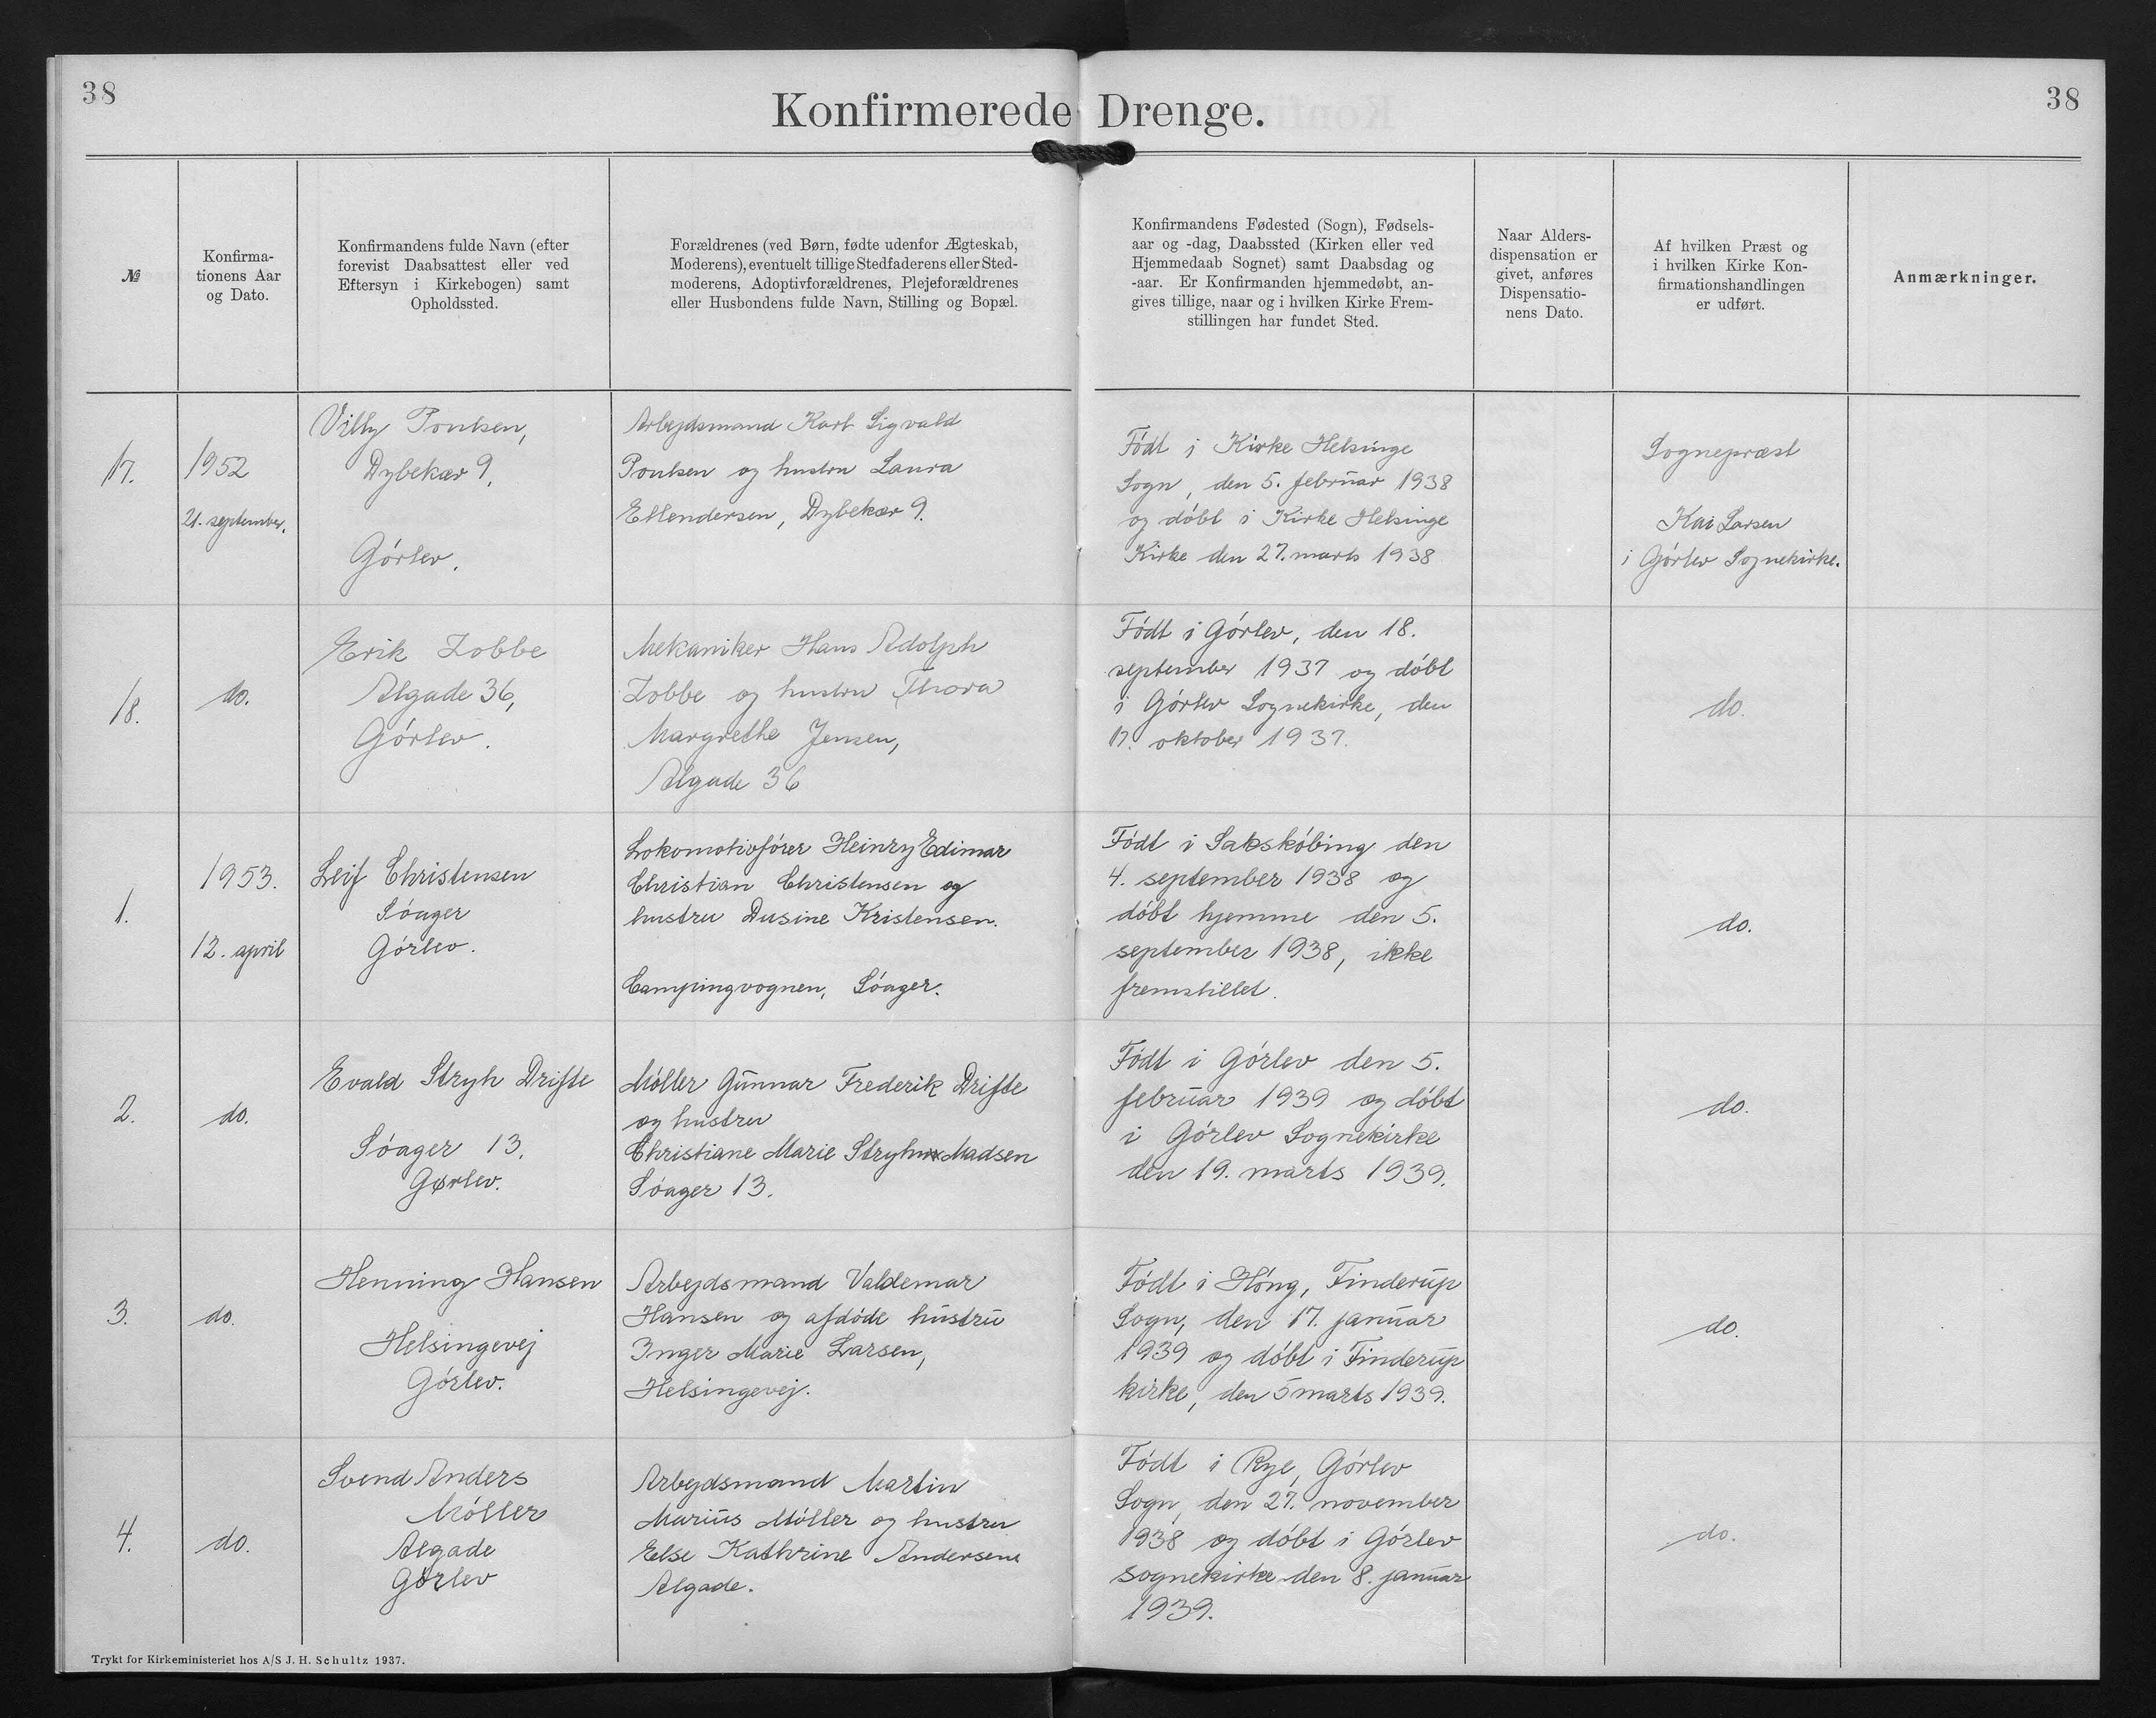 38
Konfirmerede Drenge.
38
№
Konfirma-
tionens Aar
og Dato.
Konfirmandens fulde Navn (efter
forevist Daabsattest eller ved
Eftersyn i Kirkebogen) samt
Opholdssted.
Forældrenes (ved Børn, fødte udenfor Ægteskab,
Moderens), eventuelt tillige Stedfaderens eller Sted-
moderens, Adoptivforældrenes, Plejeforældrenes
eller Husbondens fulde Navn, Stilling og Bopæl.
Konfirmandens Fødested (Sogn), Fødsels-
aar og -dag, Daabssted (Kirken eller ved
Hjemmedaab Sognet) samt Daabsdag og
-aar. Er Konfirmanden hjemmedøbt, an-
gives tillige, naar og i hvilken Kirke Frem-
stillingen har fundet Sted.
Naar Alders-
dispensation er
givet, anføres
Dispensatio-
nens Dato.
Af hvilken Præst og
i hvilken Kirke Kon-
firmationshandlingen
er udført.
Anmærkninger.
17.
1952
21. september.
Villy Poulsen,
Dybekær 9,
Gørlev.
Arbejdsmand Karl Sigvald
Poulsen og hustru Laura
Ellendersen, Dybekær 9.
Født i Kirke Helsinge
Sogn, den 5. februar 1938
og døbt i Kirke Helsinge
Kirke den 27. marts 1938
Sognepræst
Kai Larsen
i Gørlev Sognekirke.
18.
do.
Erik Lobbe
Algade 36,
Gørlev.
Mekaniker Hans Adolph
Lobbe og hustru Thora
Margrethe Jensen,
Algade 36
Født i Gørlev, den 18.
september 1937 og døbt
i Gørlev Sognekirke, den
17. oktober 1937.
do.
1.
1953.
12. april
Leif Christensen
Søager
Gørlev.
Lokomotivfører Heinry Edimar
Christian Christensen og
hustru Dusine Kristensen.
Campingvognen, Søager.
Født i Sakskøbing den
4. september 1938 og
døbt hjemme den 5.
september 1938, ikke
fremstillet.
do.
2.
do.
Evald Stryh Drifte
Søager 13.
Gørlev.
Møller Gunnar Frederik Drifte
og hustru
Christiane Marie Stryh Madsen
Søager 13.
Født i Gørlev den 5.
februar 1939 og døbt
i Gørlev Sognekirke
den 19. marts 1939.
do.
3.
do.
Henning Hansen
Helsingevej
Gørlev.
Arbejdsmand Valdemar
Hansen og afdøde hustru
Inger Marie Larsen,
Helsingevej.
Født i Høng, Finderup
Sogn, den 17. januar
1939 og døbt i Finderup
kirke, den 5 marts 1939.
do.
4.
do.
Svend Anders
Møller
Algade
Gørlev
Arbejdsmand Martin
Marius Møller og hustru
Else Kathrine Andersen
Algade.
Født i Rye, Gørlev
Sogn, den 27. november
1938 og døbt i Gørlev
sognekirke den 8. januar
1939.
do.
Trykt for Kirkeministeriet hos A/S J. H. Schultz 1937.